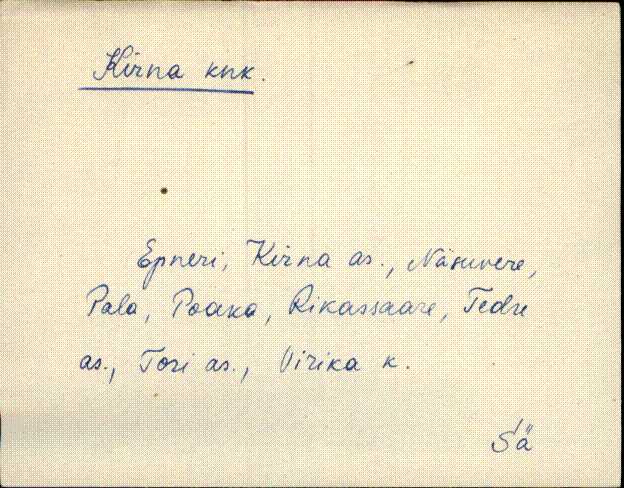 Kirna knk.
Epneri, Kirna as., Näsuvere,
Pala, Poaka, Rikassaare, Tedre
as., Tori as., Virika k.
Sä